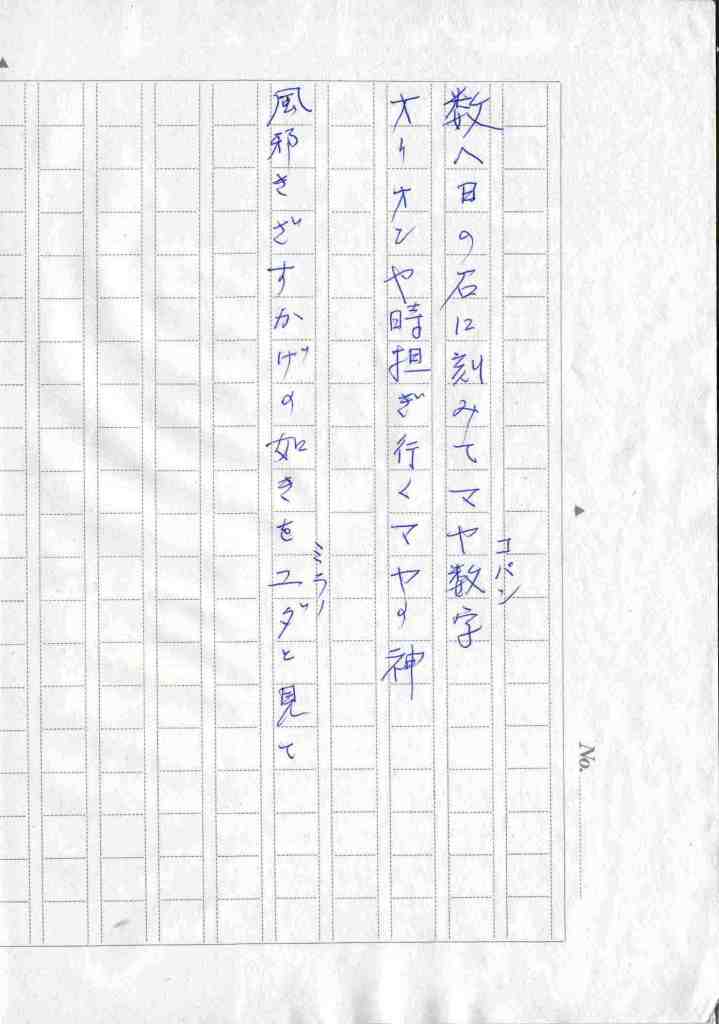 コパン
数へ日の石に刻みてマヤ数字
オリオンや時担ぎ行くマヤの神
ミラノ
風邪きざすかげの如きをユダと見て
No.